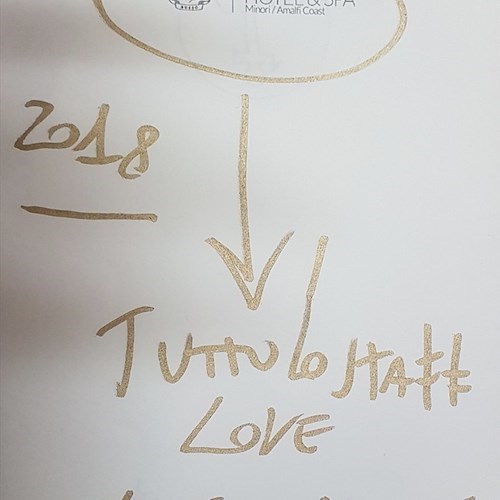 HOTEL & SPA
Minori / Amalfi Coast
2018
TUTTO lo STAFF
LOVE